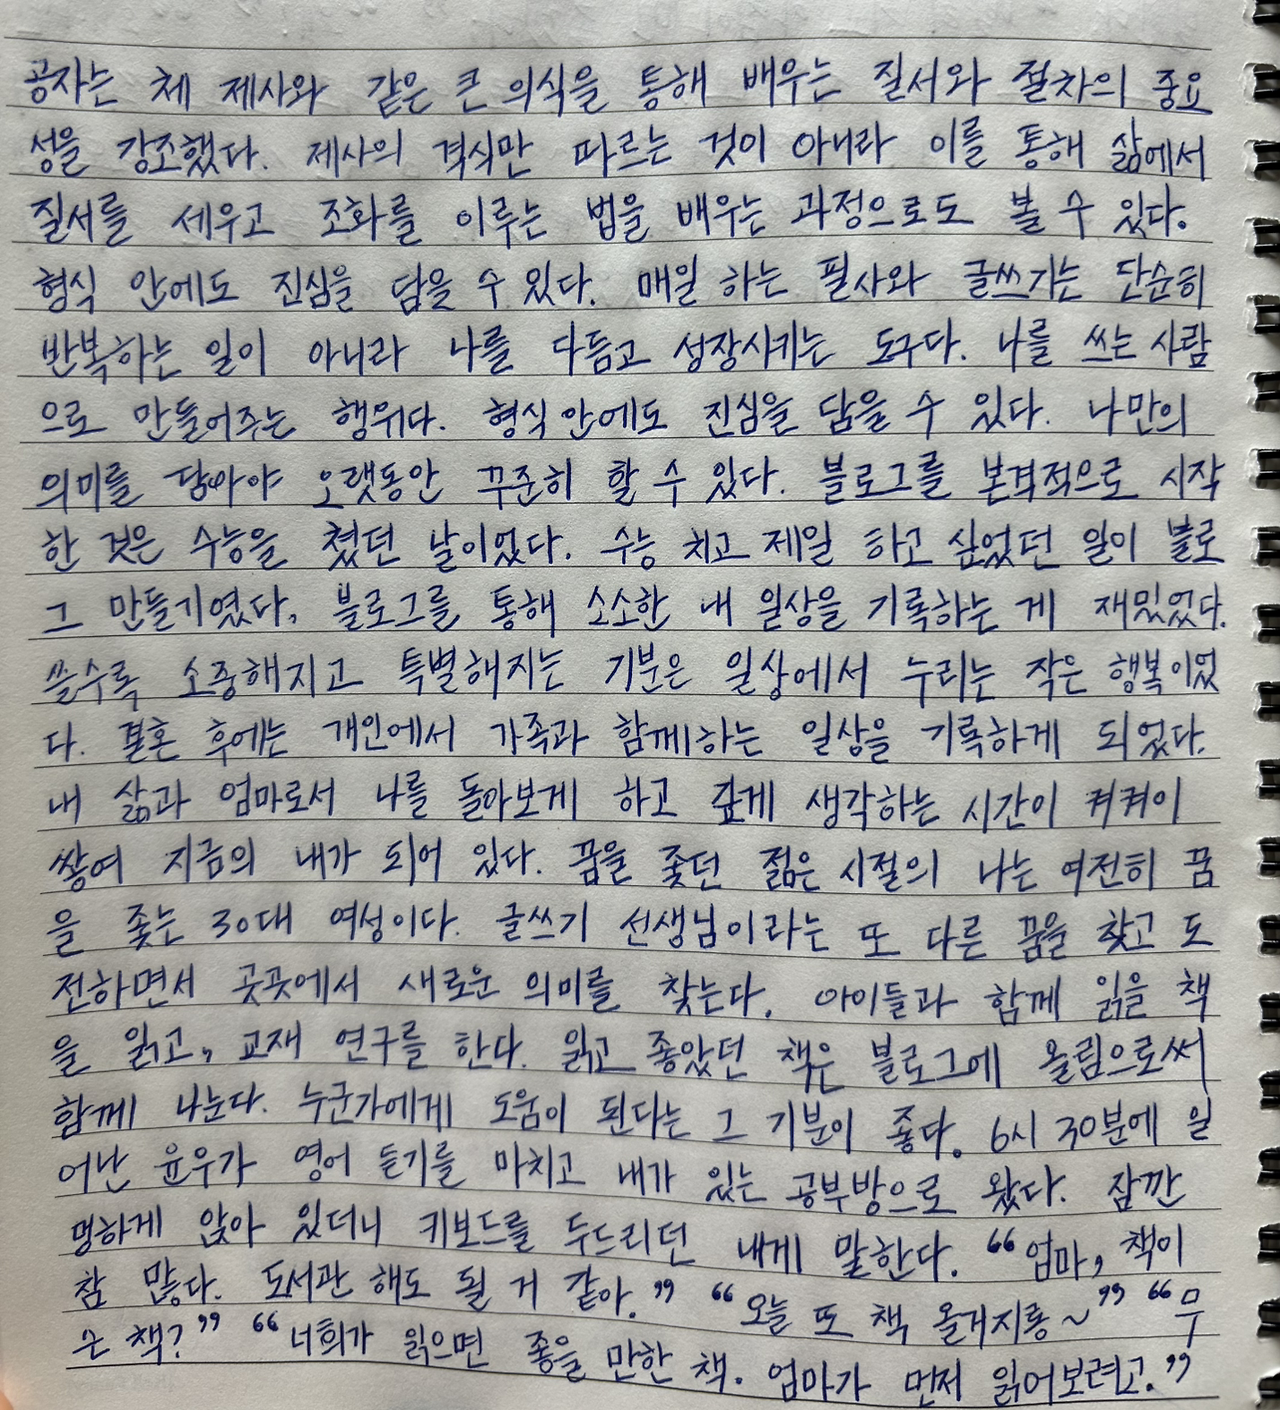 공자는 체 제사와 같은 큰 의식을 통해 배우는 질서와 절차의 중요
성을 강조했다. 제사의 격식만 따르는 것이 아니라 이를 통해 삶에서
질서를 세우고 조화를 이루는 법을 배우는 과정으로도 볼 수 있다.
형식 안에도 진심을 담을 수 있다. 매일 하는 필사와 글쓰기는 단순히
반복하는 일이 아니라 나를 다듬고 성장시키는 도구다. 나를 쓰는 사람
으로 만들어주는 행위다. 형식 안에도 진심을 담을 수 있다. 나만의
의미를 담아야 오랫동안 꾸준히 할 수 있다. 블로그를 본격적으로 시작
한 것은 수능을 쳤던 날이었다. 수능 치고 제일 하고 싶었던 일이 블로
그 만들기였다. 블로그를 통해 소소한 내 일상을 기록하는 게 재밌었다.
쓸수록 소중해지고 특별해지는 기분은 일상에서 누리는 작은 행복이었
다. 결혼 후에는 개인에서 가족과 함께하는 일상을 기록하게 되었다.
내 삶과 엄마로서 나를 돌아보게 하고 깊게 생각하는 시간이 켜켜이
쌓여 지금의 내가 되어 있다. 꿈을 좇던 젊은 시절의 나는 여전히 꿈
을 좇는 30대 여성이다. 글쓰기 선생님이라는 또 다른 꿈을 찾고 도
전하면서 곳곳에서 새로운 의미를 찾는다. 아이들과 함께 읽을 책
을 읽고, 교재 연구를 한다. 읽고 좋았던 책은 블로그에 올림으로써
함께 나눈다. 누군가에게 도움이 된다는 그 기분이 좋다. 6시 30분에 일
어난 윤우가 영어 듣기를 마치고 내가 있는 공부방으로 왔다. 잠깐
멍하게 앉아 있더니 키보드를 두드리던 내게 말한다. “엄마, 책이
참 많다. 도서관 해도 될 거 같아.” “오늘 또 책 올거지롱~” “무
슨 책?” “너희가 읽으면 좋을 만한 책. 엄마가 먼저 읽어보려고.”